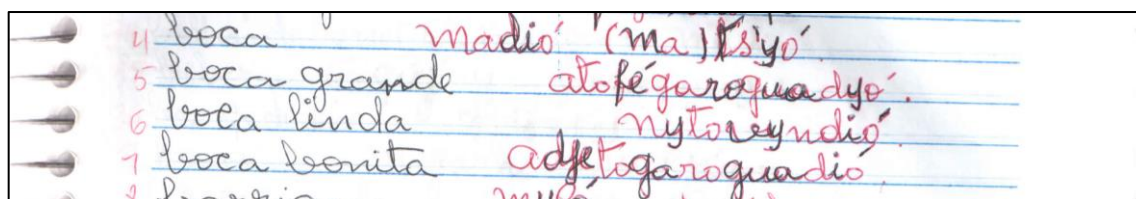 4 boca madió (ma) ts'yó
5 boca grande atofégaroguadyó.
6 boca linda nytoveyndió
7 boca bonita adjetogaroguadió.